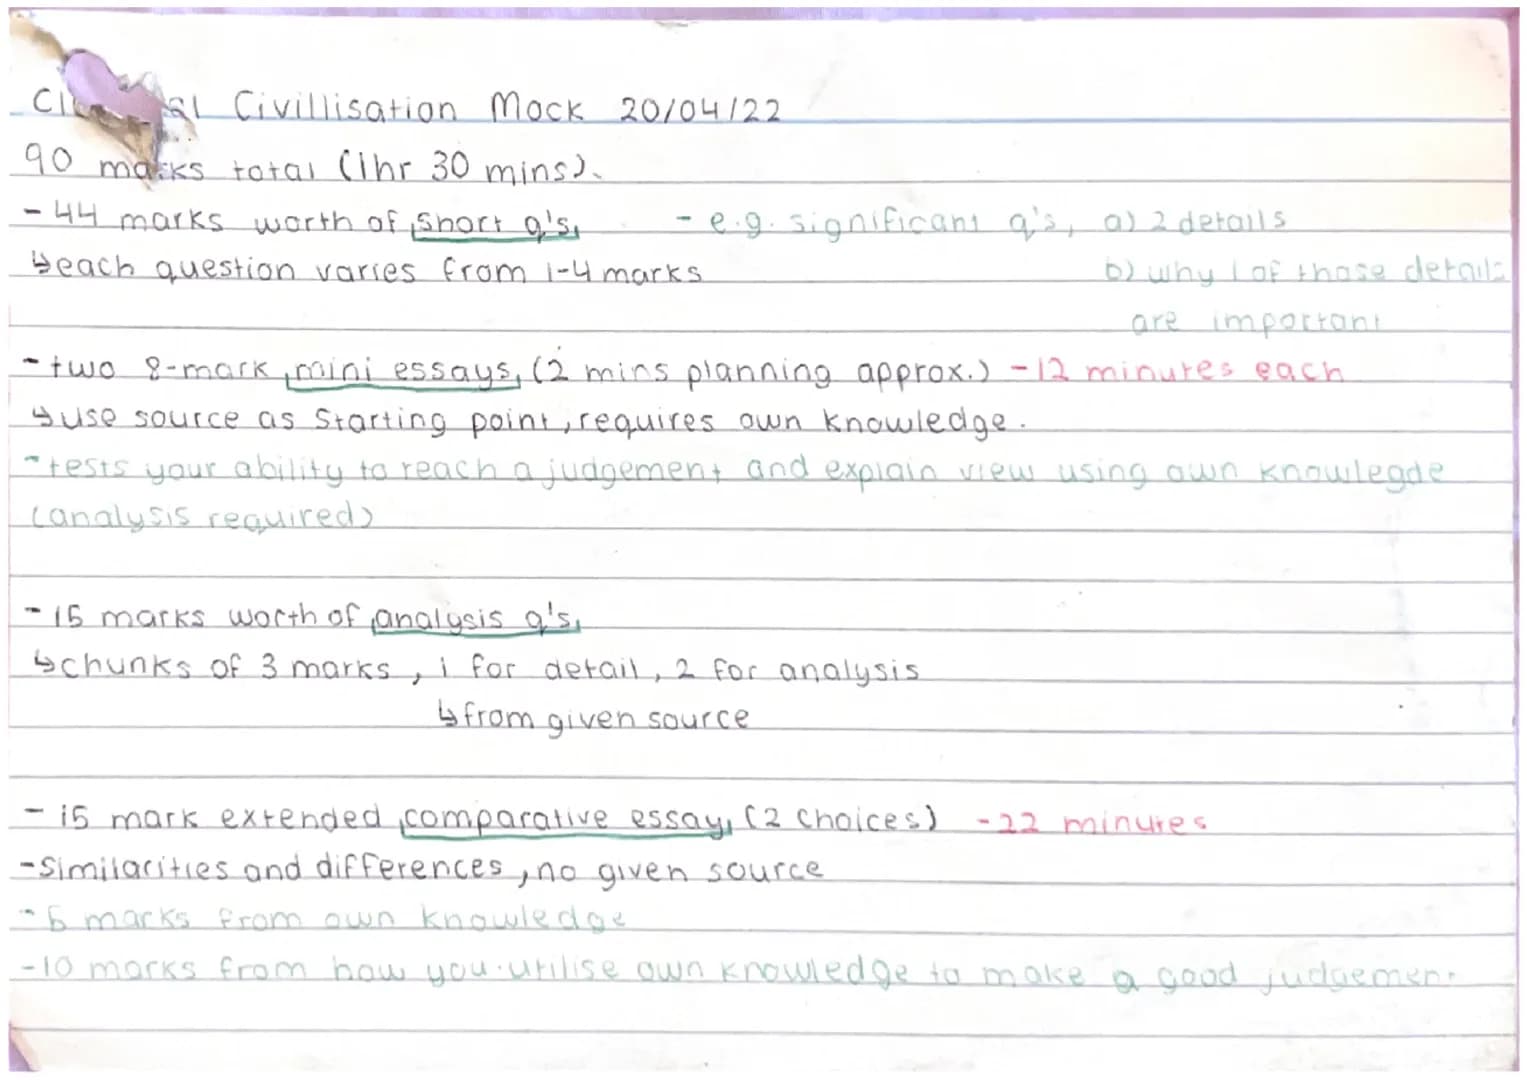 Civillisation Mock 20/04/22
90 marks total (1hr 30 mins).
- 44 marks worth of short q's, - e.g. significant q's, a) 2 details
↳ each question varies from 1-4 marks b) why 1 of those details
are important
- two 8-mark mini essays, (2 mins planning approx.) - 12 minutes each
↳ use source as starting point, requires own knowledge.
- tests your ability to reach a judgement and explain view using own knowlegde
(analysis required)
- 15 marks worth of analysis q's,
↳ chunks of 3 marks, 1 for detail, 2 for analysis
↳ from given source
- 15 mark extended comparative essay, (2 choices) - 22 minutes
- similarities and differences, no given source
- 5 marks from own knowledge
- 10 marks from how you utilise own knowledge to make a good judgement